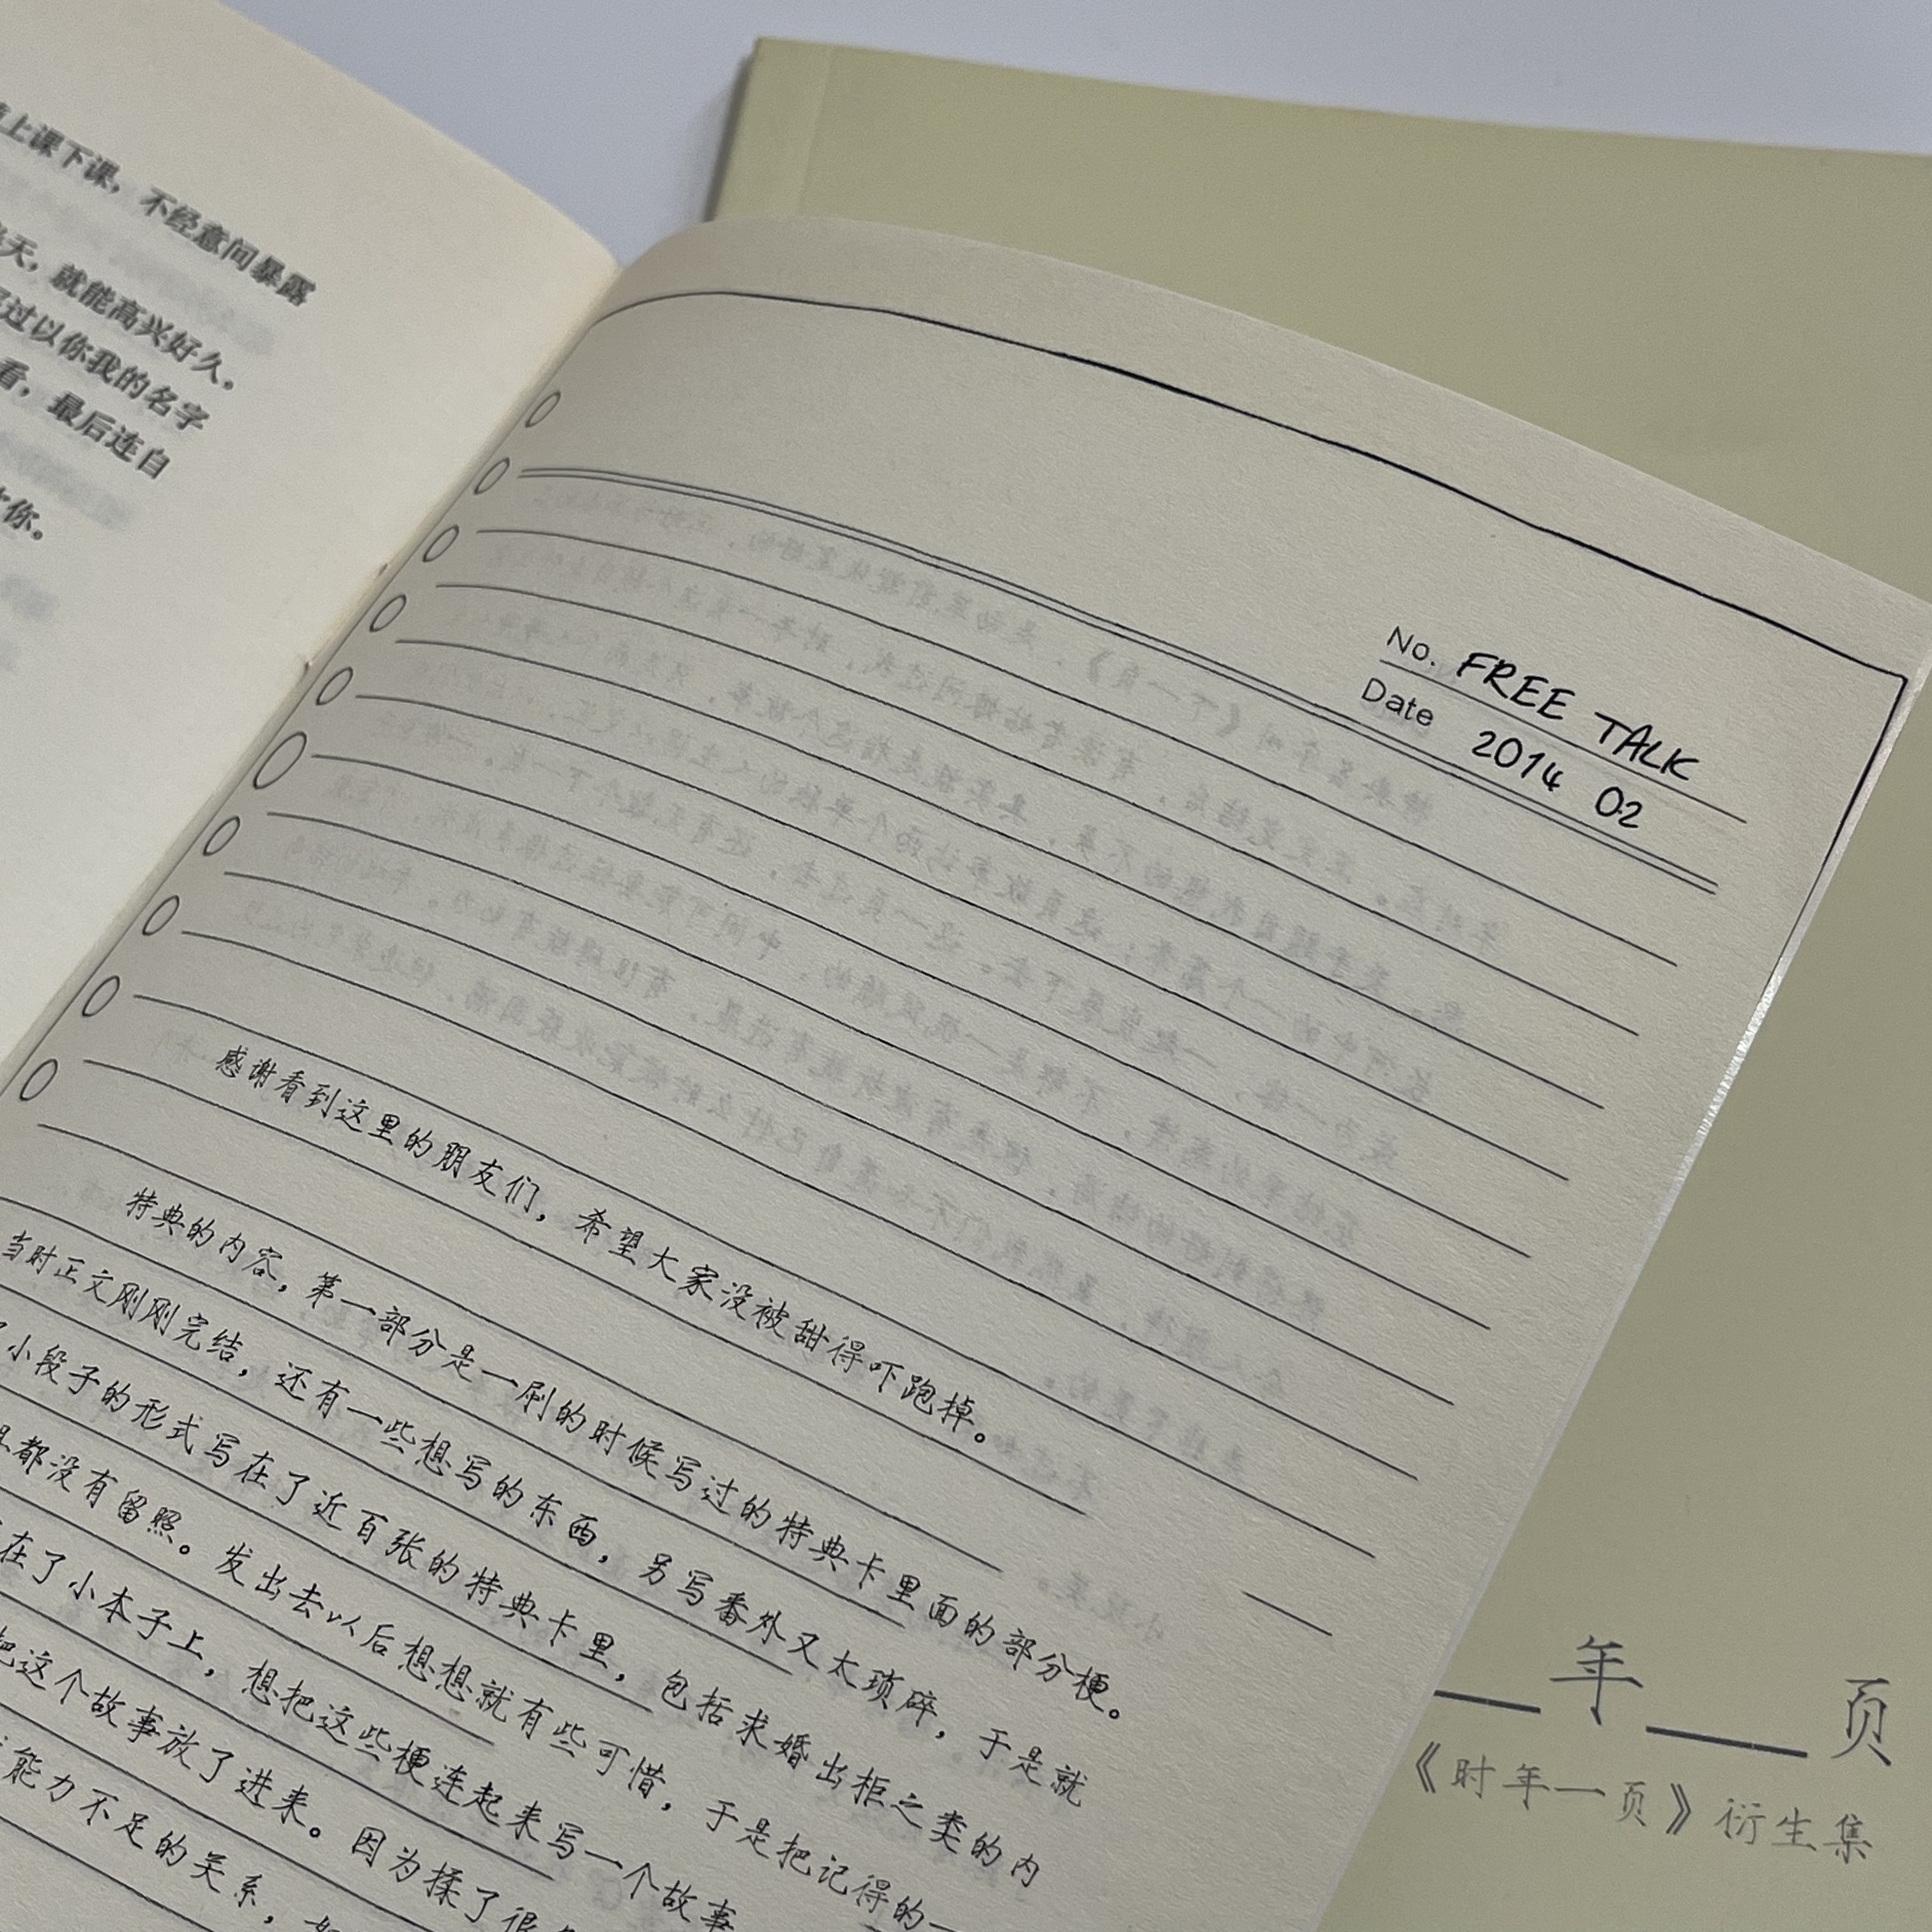 上课下课，不经意间暴露
天，就能高兴好久。
过以你我的名字
看，最后连自
你。
No. FREE TALK
Date 2014 02
感谢看到这里的朋友们，希望大家没被甜得吓跑掉。
特典的内容，第一部分是一刷的时候写过的特典卡里面的部分梗。
当时正文刚刚完结，还有一些想写的东西，另写番外又太琐碎，于是就
小段子的形式写在了近百张的特典卡里，包括求婚出柜之类的内
都没有留照。发出去以后想想就有些可惜，于是把记得的一
在了小本子上，想把这些梗连起来写一个故事
把这个故事放了进来。因为揉了很
能力不足的关系，
年 页
《时年一页》衍生集